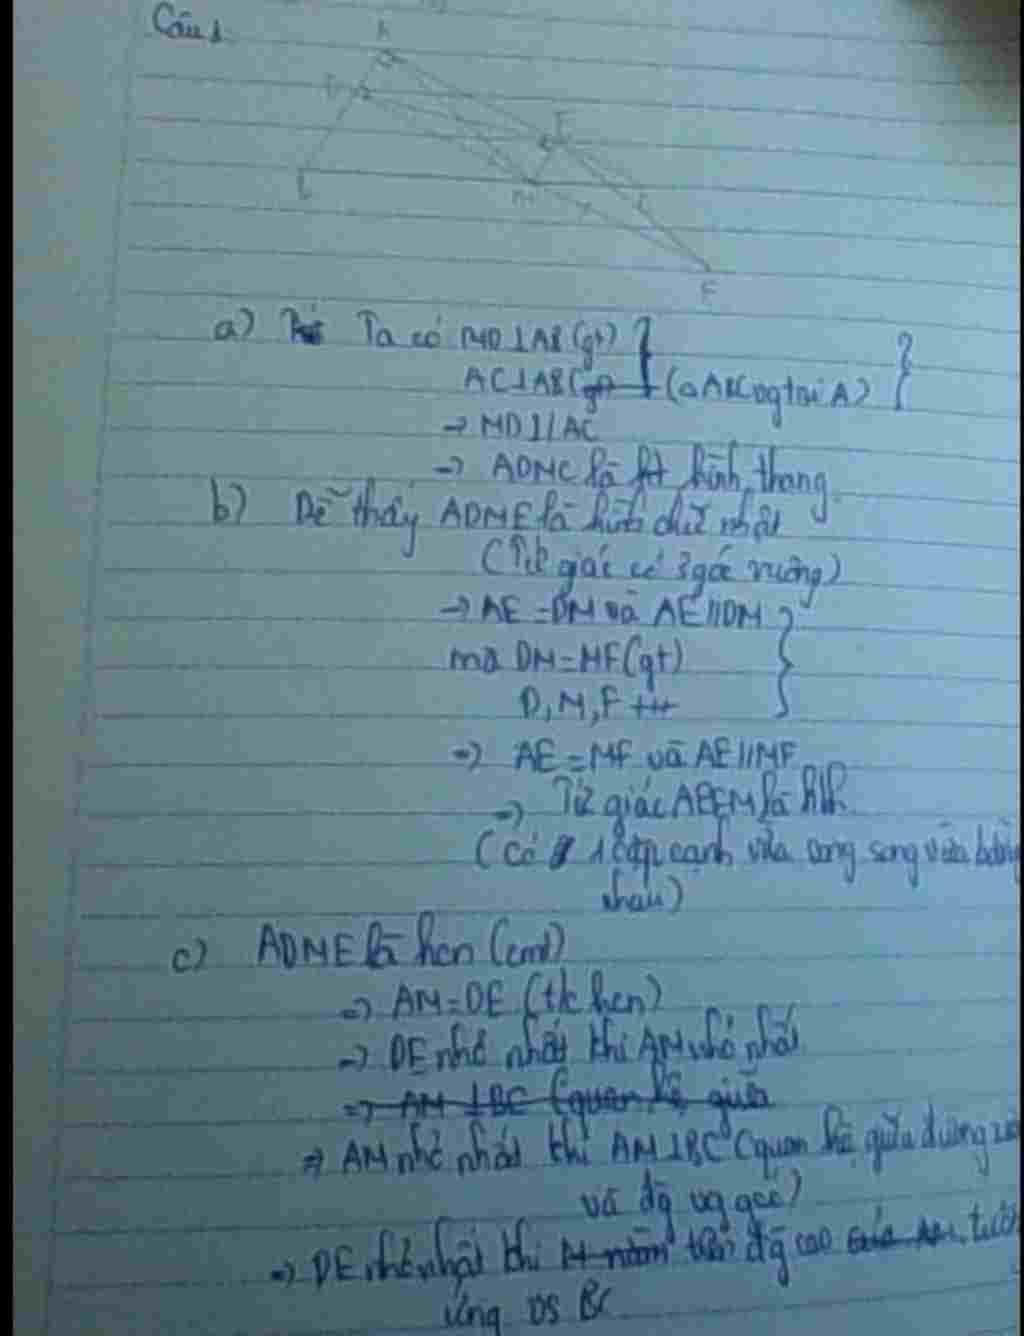 Câu 1
A
D
E
B
M
F
a) Ta có MD⊥AB (gt)
AC⊥AB (gt) (ΔABC vg tại A)
→ MD // AC
→ ADMC là hình thang
b) Dễ thấy ADME là hình chữ nhật
(Tứ giác có 3 góc vuông)
→ AE = DM và AE // DM
mà DM = MF (gt)
D, M, F
=> AE = MF và AE // MF
=> Tứ giác AEFM là hbh
(Có 1 cặp cạnh vừa song song vừa bằng
nhau)
c) ADME là hcn (cmt)
=> AM = DE (t/c hcn)
=> DE nhỏ nhất khi AM nhỏ nhất
=> AM ⊥ BC (quan hệ giữa
=> AM nhỏ nhất khi AM⊥BC (quan hệ giữa đường
và đg vg góc)
=> DE nhỏ nhất khi M nằm trên đg cao của tương
ứng BC